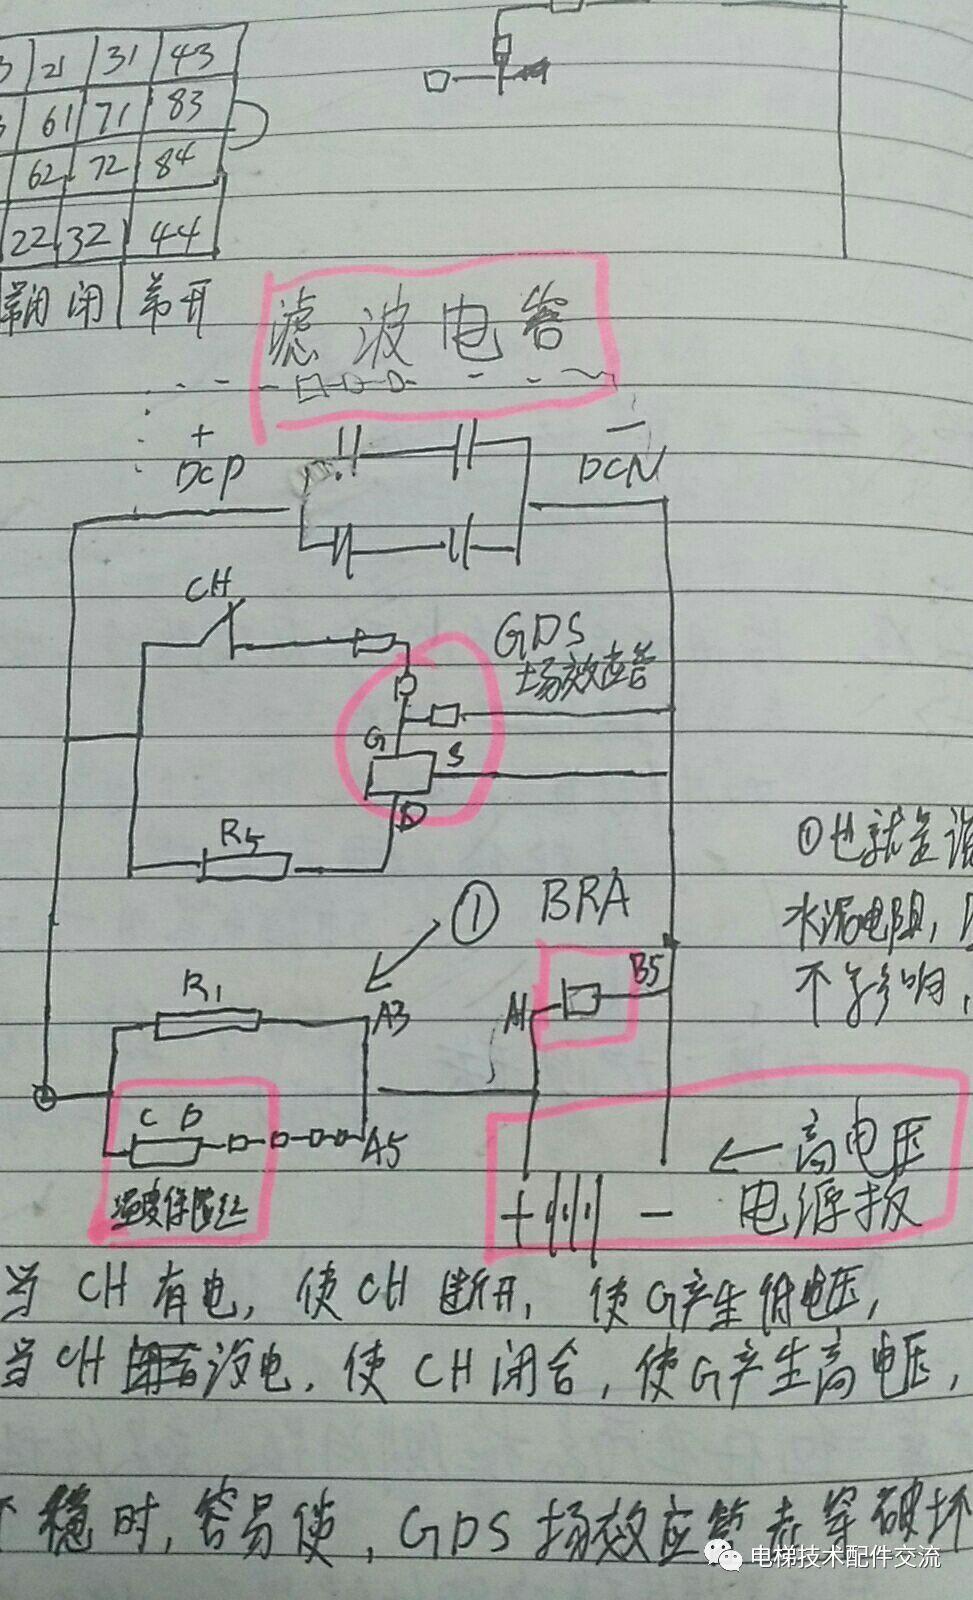 3 21 31 43
3 61 71 83
62 72 84
22 32 44
常闭 闭 常开
滤波电容
+
DCP
－
DCN
CH
GDS
场效应管
G
S
D
R5
① BRA
①也就是说
水泥电阻，
不影响，
R1
A3
A1
B5
C D
A5
温度保险丝
←高电压
电源板
+
－
当CH有电，使CH断开，使G产生低电压，
当CH没电，使CH闭合，使G产生高电压，
不稳时，容易使，GDS场效应管击穿破坏
电梯技术配件交流